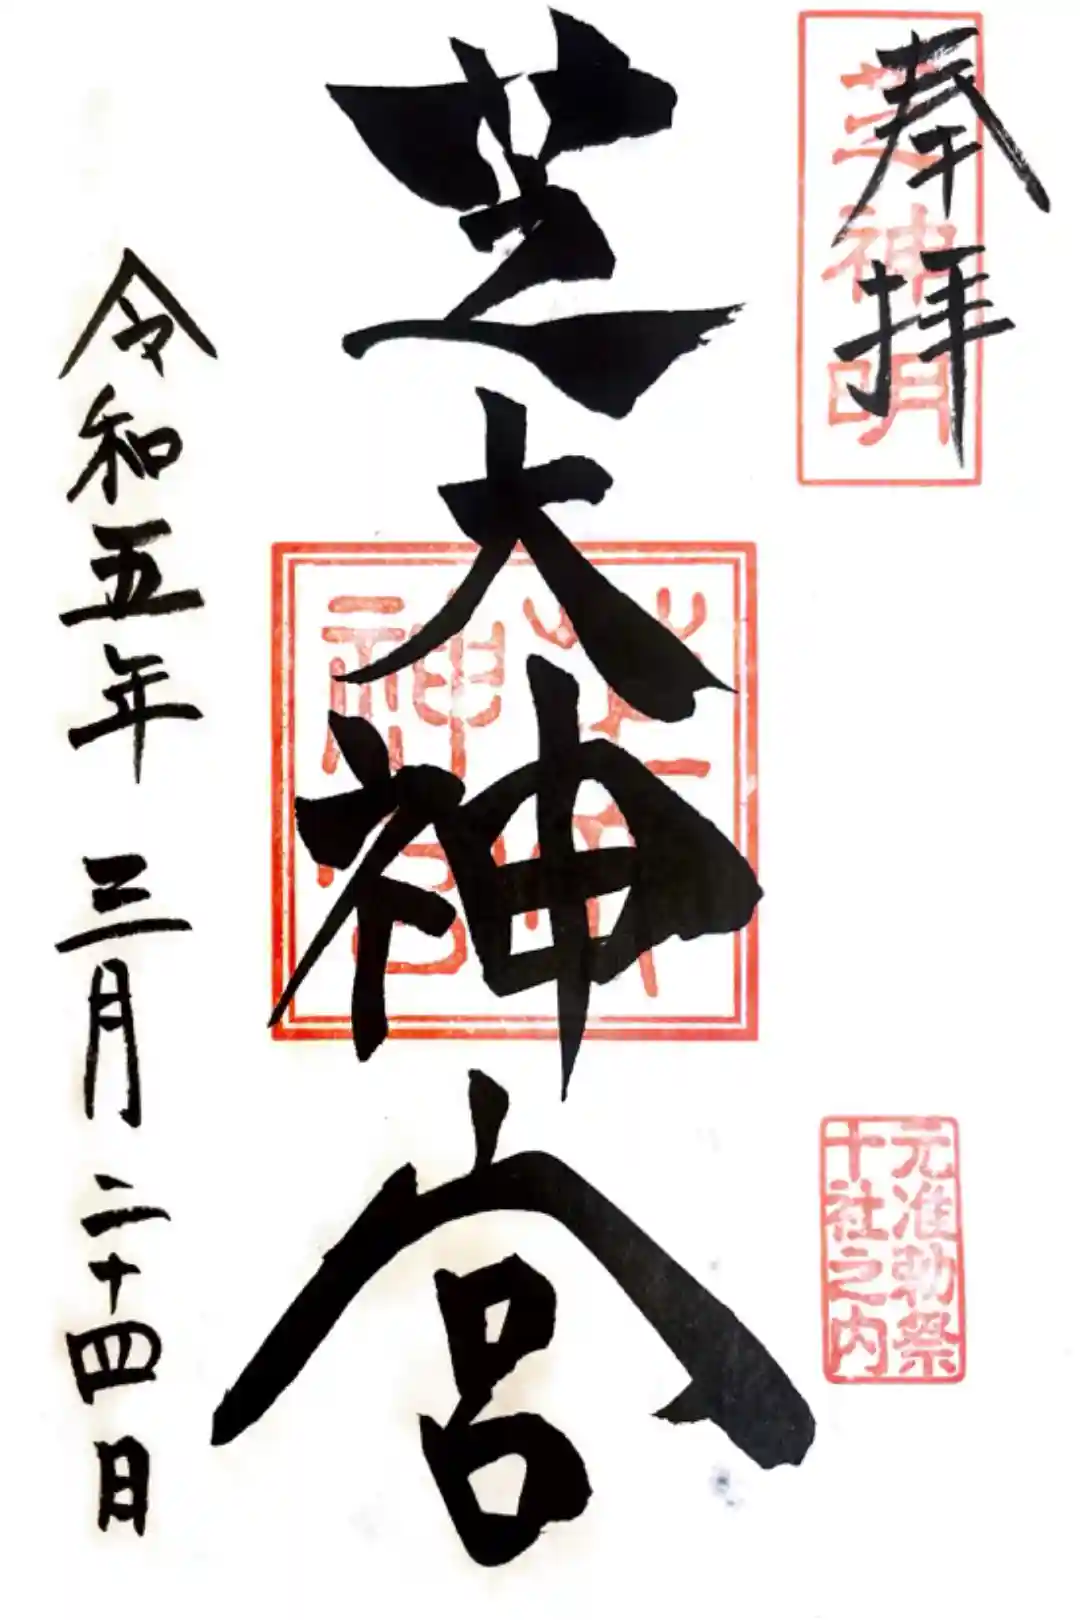 奉拝
芝神明
元准勅祭
十社之内
芝大神宮
芝大
神宮
令和五年 三月 二十四日